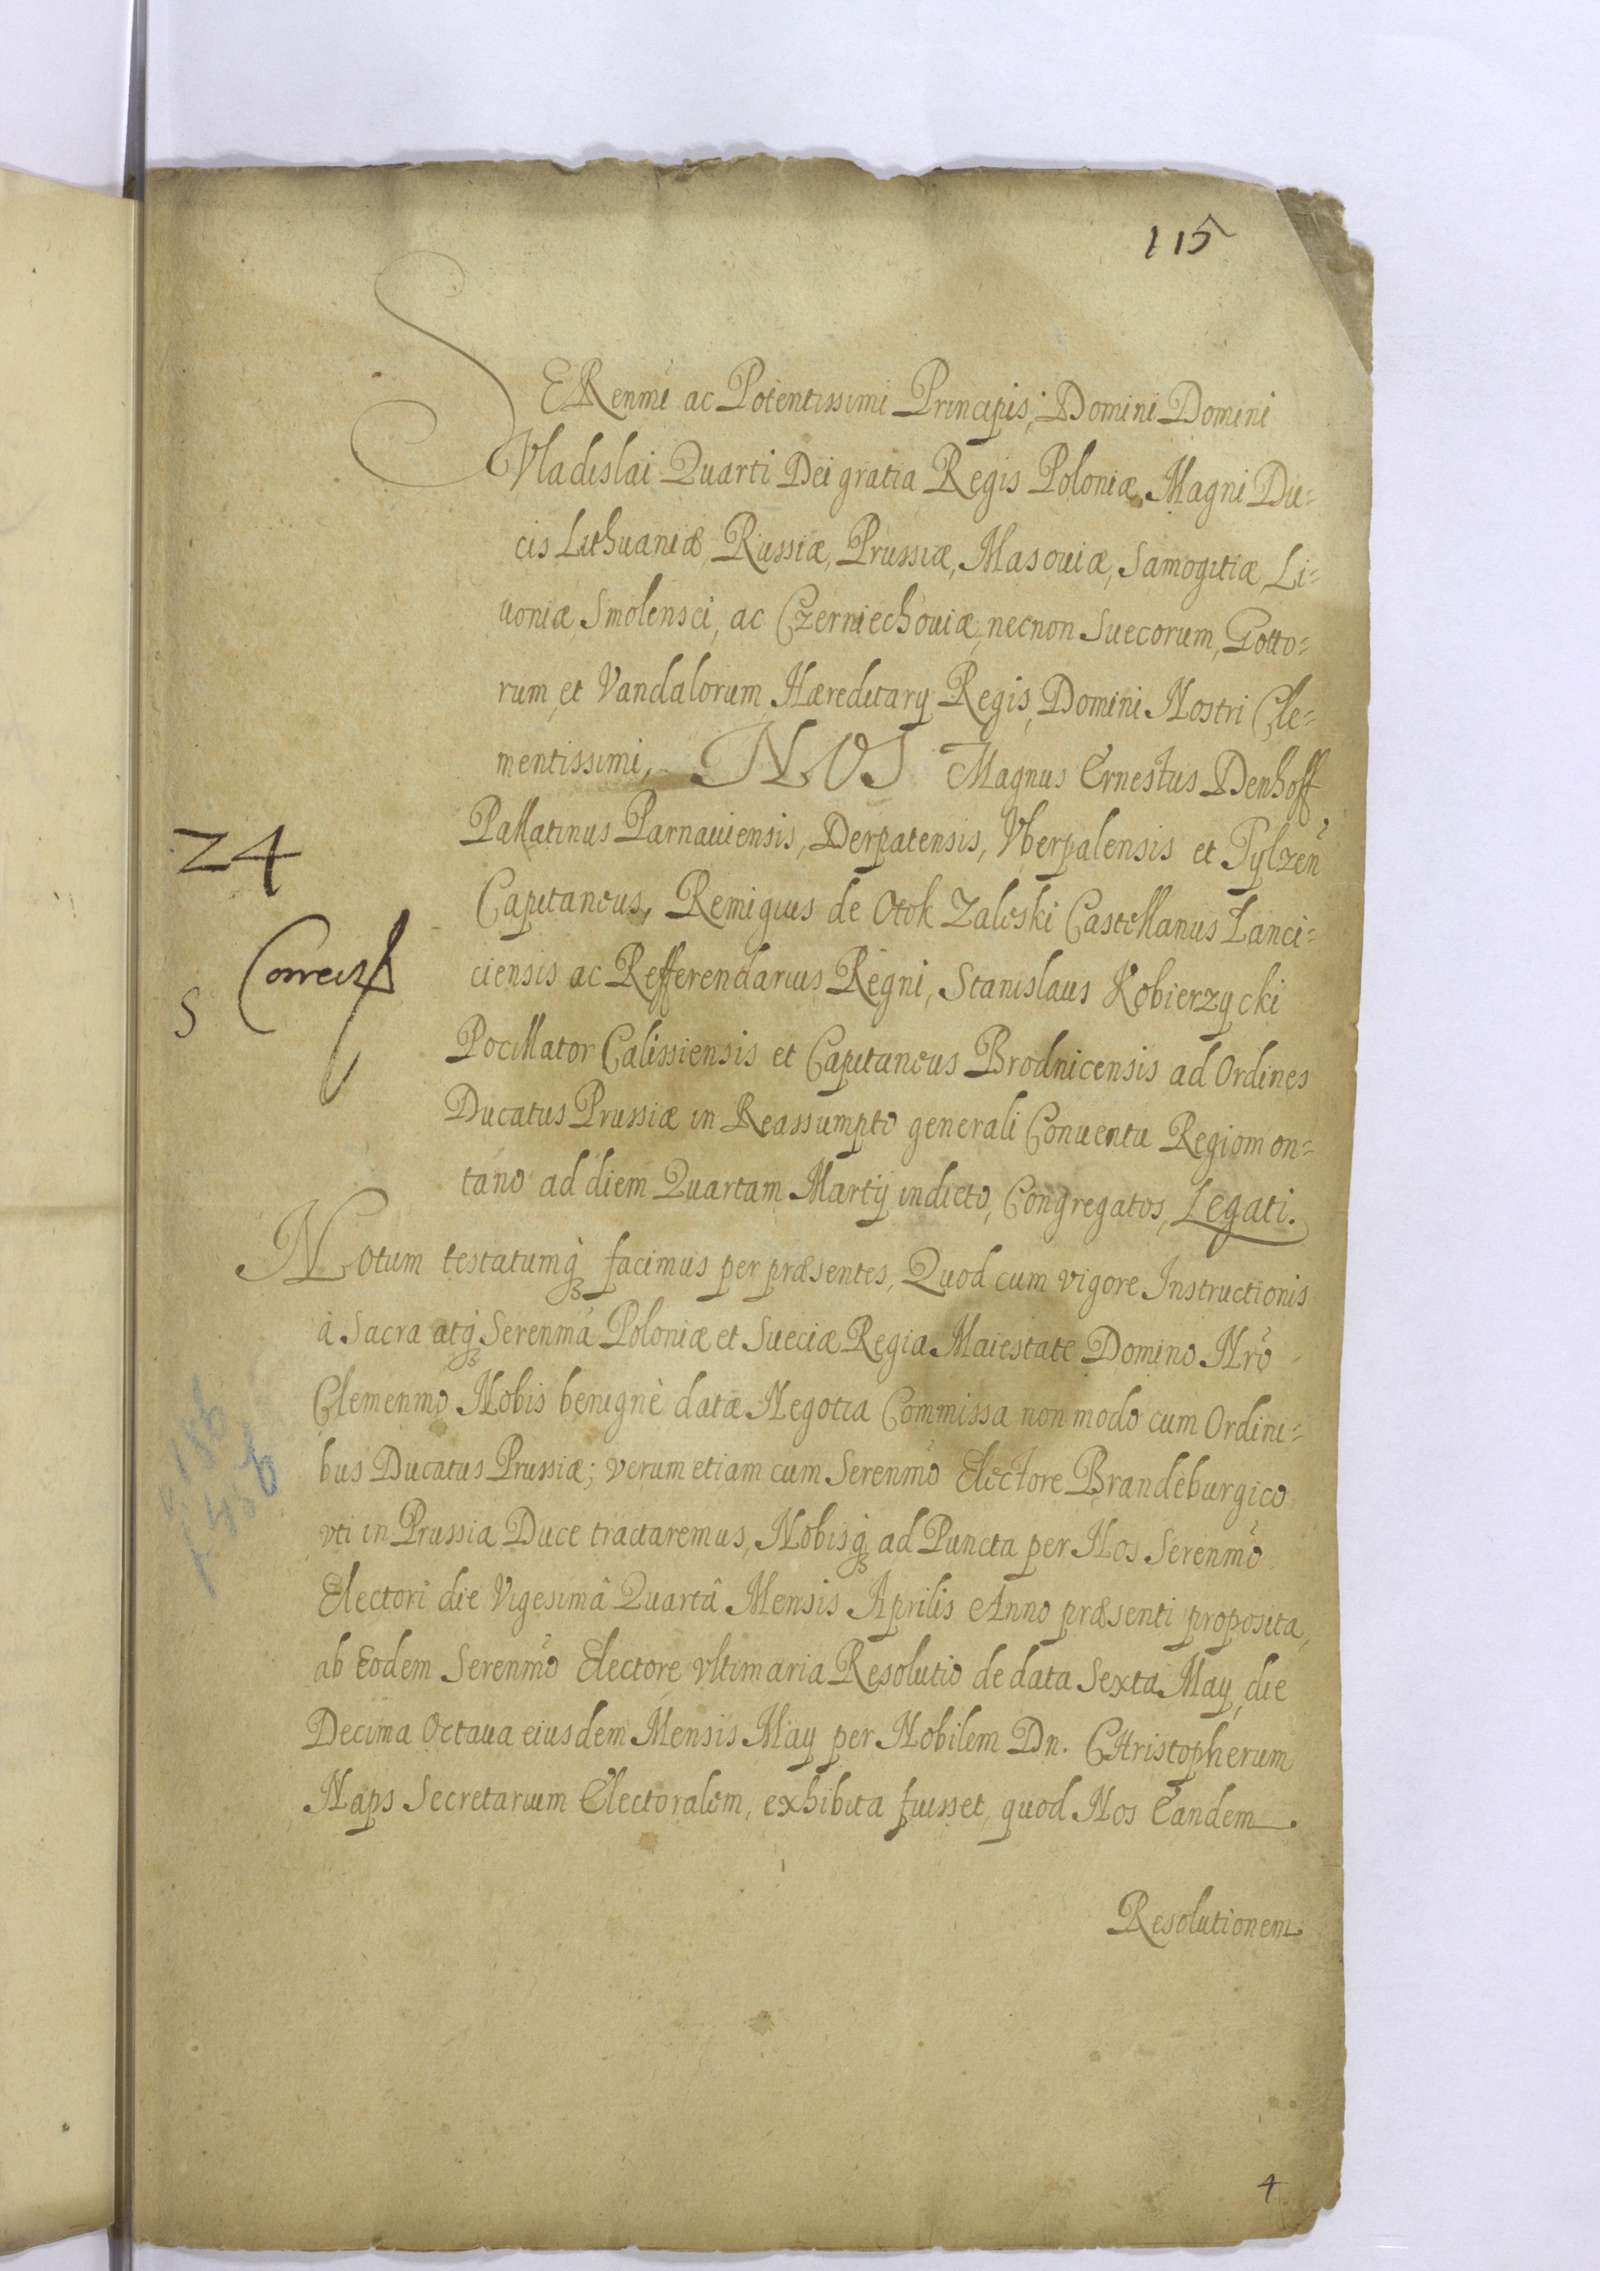 115
SERenmi ac Potentissimi Principis, Domini Domini
Vladislai Quarti Dei gratia Regis Poloniæ Magni Du=
cis Lithuaniæ, Russiæ, Prussiæ, Masouiæ, Samogitiæ, Li=
uoniæ Smolensci, ac Czerniechouiæ, necnon Suecorum, Gotto=
rum et Vandalorum Hæreditarÿ Regis, Domini Nostri Cle=
mentissimi, NOS Magnus Ernestus Denhoff
Pallatinus Parnauiensis, Derpatensis, Vberpalensis et Tylzen̄
Capitaneus, Remigius de Otok Zaleski Castellanus Lanci=
ciensis ac Refferendarius Regni, Stanislaus Kobierzycki
Pocillator Calissiensis et Capitaneus Brodnicensis ad Ordines
Ducatus Prussiæ in Reassumpto generali Conuentu Regiomon=
tano ad diem Quartam Martÿ indicto, Congregatos, Legati.
24
Correct
S
Notum testatumq̀ facimus per præsentes, Quod cum vigore Instructionis
à Sacra atq̀ Serenmâ Poloniæ et Sueciæ Regia Maiestate Domino Nrō
Clemenmō Nobis benignè datæ Negotia Commissa non modo cum Ordini=
bus Ducatus Prussiæ; verum etiam cum Serenmō Electore Brandeburgico
vti in Prussia Duce tractaremus, Nobisq̀ ad Puncta per Nos Serenmō
Electori die Vigesimâ Quartâ Mensis Aprilis Anno præsenti proposita,
ab Eodem Serenmō Electore vltimaria Resolutio de data Sexta Maÿ, die
Decima Octaua eiusdem Mensis Maÿ per Nobilem Dn. CHristopherum
Naps Secretarium Electoralem, exhibita fuisset, quod Nos Eandem
Resolutionem
4